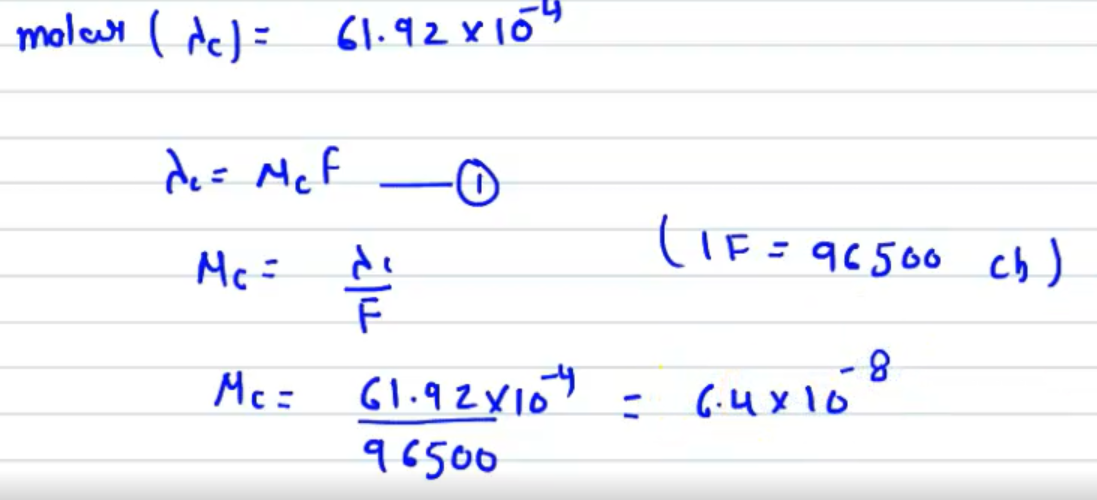 molar (λc) = 61.92 × 10⁻⁴
λc = μc F —— ①
μc = λc / F (1F = 96500 cb)
μc = 61.92×10⁻⁴ / 96500 = 6.4 × 10⁻⁸